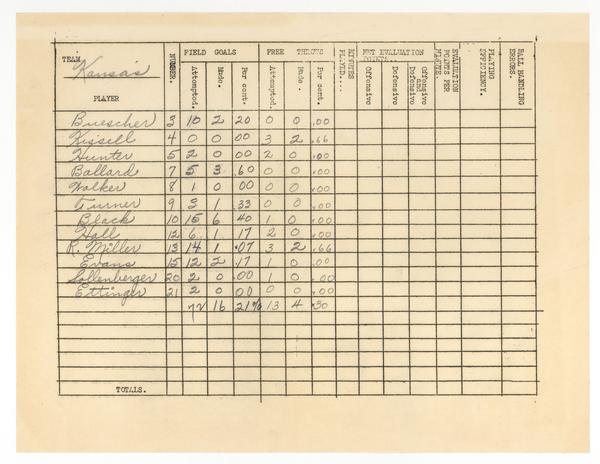 TEAM Kansas
PLAYER
NUMBER.
FIELD GOALS
Attempted.
Made.
Per cent.
FREE THROWS
Attempted.
Made.
Per cent.
MINUTES PLAYED....
NET EVALUATION POINTS..
Offensive
Defensive
Offensive and Defensive
EVALUATION POINTS PER MINUTE.
PLAYING EFFICIENCY.
BALL HANDLING ERRORS.
Buescher 3 10 2 .20 0 0 .00
Kissell 4 0 0 00 3 2 .66
Hunter 5 2 0 00 2 0 .00
Ballard 7 5 3 .60 0 0 .00
Walker 8 1 0 00 0 0 .00
Turner 9 3 1 .33 0 0 .00
Black 10 15 6 40 1 0 .00
Hall 12 6 1 17 2 0 .00
R. Miller 13 14 1 .07 3 2 .66
Evans 15 12 2 .17 1 0 .00
Sollenberger 20 2 0 .00 1 0 .00
Ettinger 21 2 0 .00 0 0 .00
72 16 21% 13 4 .30
TOTALS.